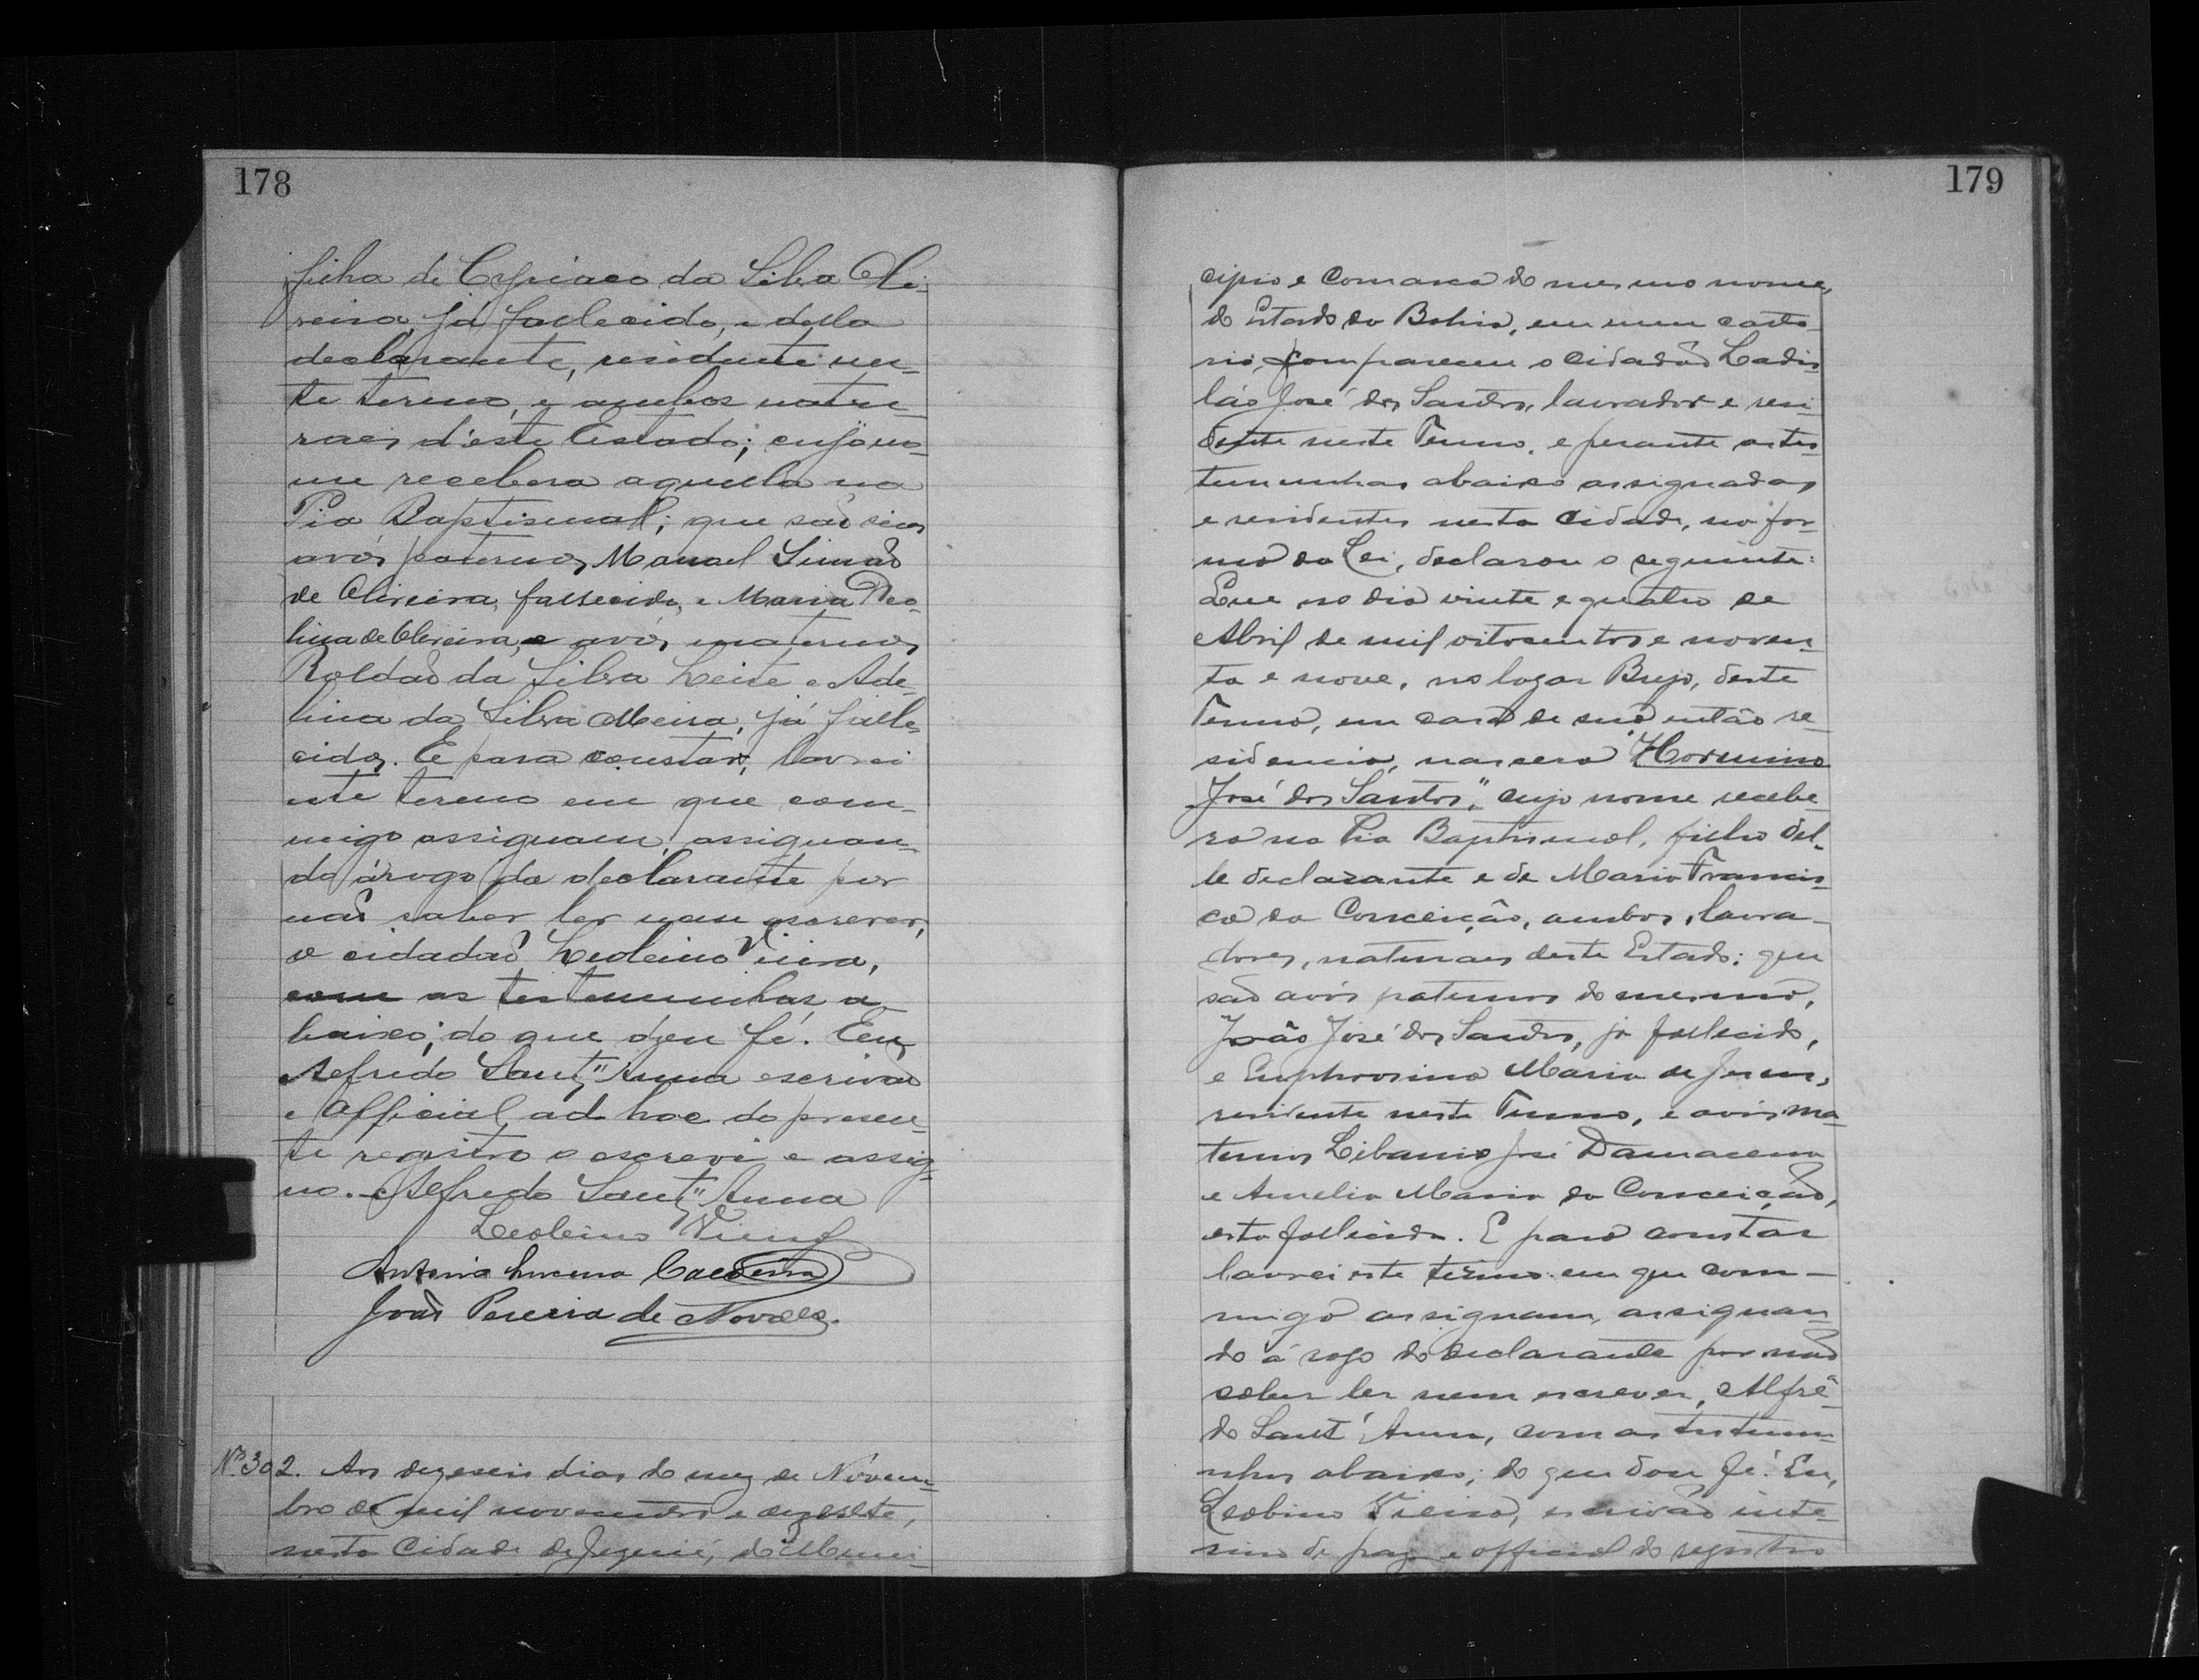 178
filha de Cypriaco da Silva Oli-
veira, já fallecido, e della
declarante, residente nes-
te termo, e ambos natu-
raes d'este Estado; cujo no-
me recebera aquella na
Pia Baptismal; que são seus
avós paternos Manoel Simão
de Oliveira, fallecido, e Maria Deo-
lina de Oliveira, e avós maternos
Roldão da Silva Leite e Ade-
lina da Silva Meira, já falle-
cidos. E para constar, lavrei
este termo em que com-
migo assignam, assignan-
do á rogo da declarante por
não saber ler nem escrever,
o cidadão Leolino Vieira,
com as testemunhas a-
baixo; do que dou fé. Eu,
Alfredo Sant'Anna escrivão
e Official ad hoc do presen-
te registro o escrevi e assig-
no. Alfredo Sant'Anna
Leolino Vieira
Antonio Lucena Caldeira
João Pereira de Novaes.
Nº 302. Aos dezeseis dias do mez de Novem-
bro de mil novecentos e dezesete,
nesta Cidade de Jequié, do Muni-
179
cipio e Comarca do mesmo nome,
do Estado da Bahia, em meu carto-
rio, compareceu o cidadão Ladis-
láo José dos Santos, lavrador e resi-
dente neste Termo, e perante as tes-
temunhas abaixo assignadas
e residentes nesta Cidade, na for-
ma da Lei, declarou o seguinte:
Que no dia vinte e quatro de
Abril de mil oitocentos e noven-
ta e nove, no logar Brejo, deste
Termo, em casa de sua então re-
sidencia, nascera "Hormino
José dos Santos", cujo nome recebe-
ra na Pia Baptismal, filho del-
le declarante e de Maria Francis-
ca da Conceição, ambos, lavra-
dores, naturaes deste Estado; que
são avós paternos do mesmo,
João José dos Santos, já fallecido,
e Euphrosina Maria de Jesus,
residente neste Termo, e avós ma-
ternos Libanio José Damaceno
e Amelia Maria da Conceição,
esta fallecida. E para constar
lavrei este termo em que com-
migo assignam, assignan-
do á rogo do declarante por não
saber ler nem escrever, Alfre-
do Sant'Anna, com as testemu-
nhas abaixo; do que dou fé. Eu,
Leolino Vieira, escrivão inte-
rino de paz e official do registro